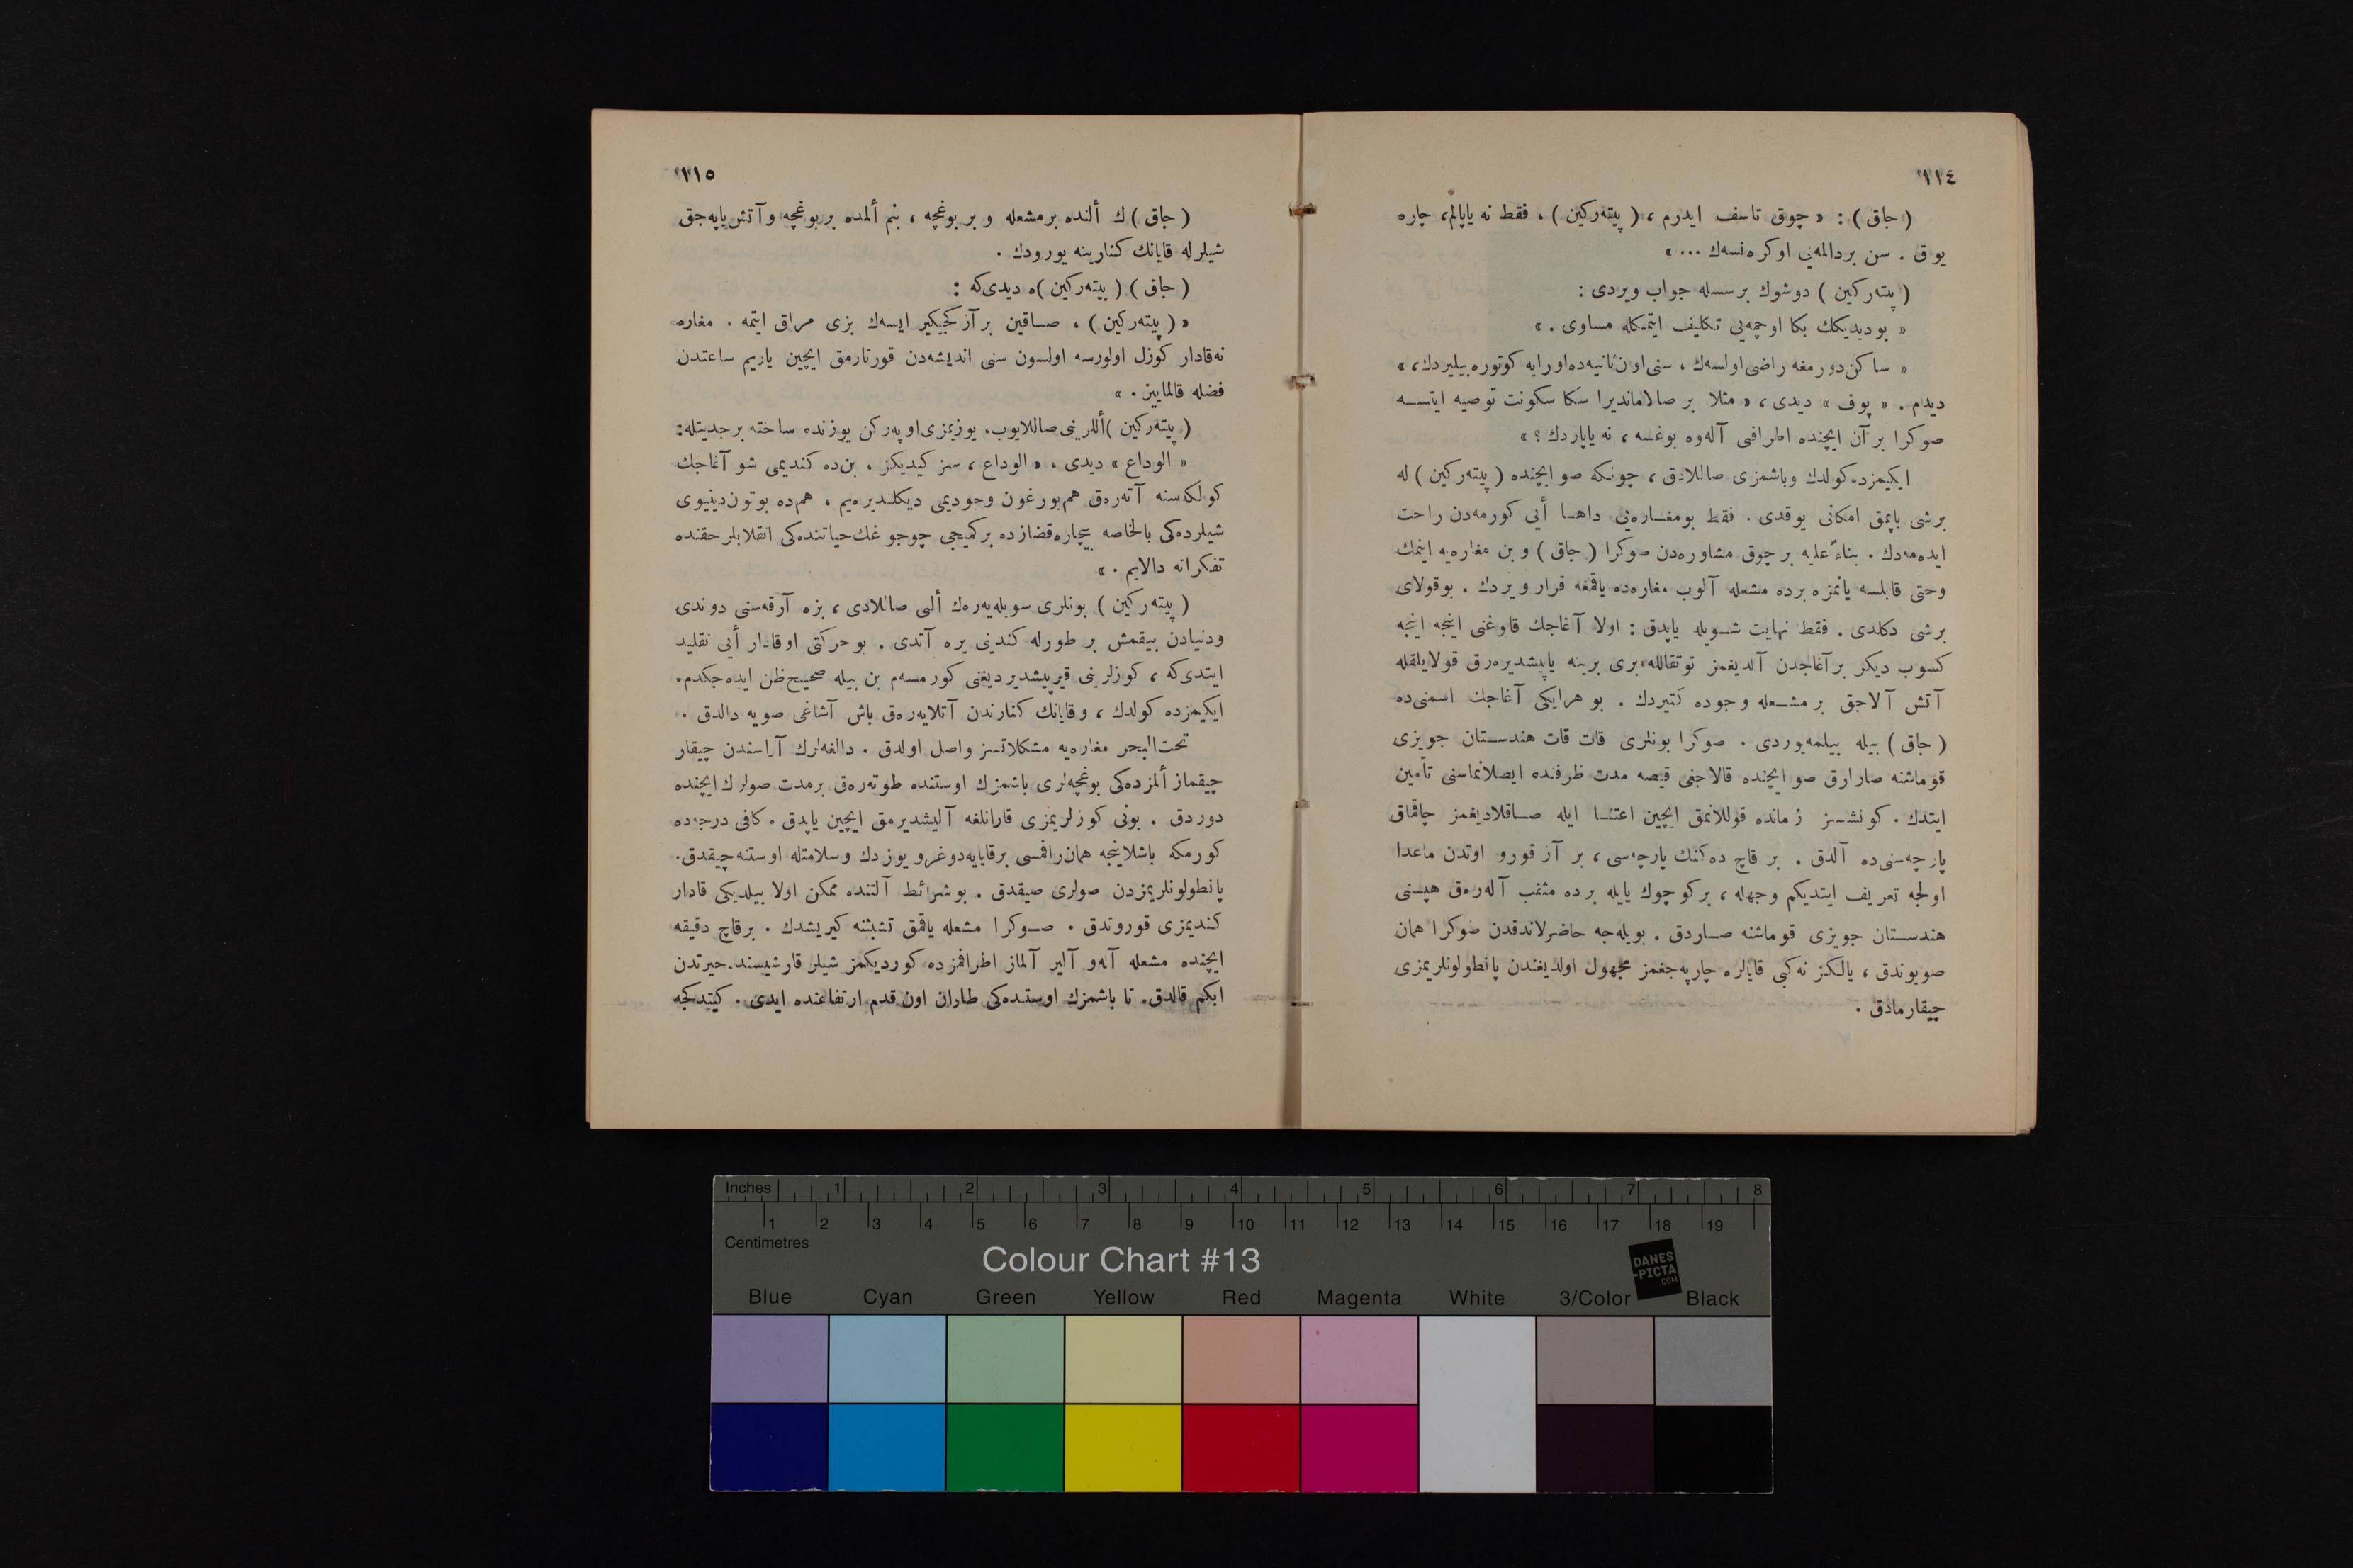 ١١٤
( جاق ) : « چوق تاسف ايدرم ، ( پيتەركين ) ، فقط نه ياپالم ، چاره
يوق . سن بردالمەيى اوكرەنسەك ... »
( پيتەركين ) دوشوك برسسله جواب ويردى :
« بوديديكك بكا اوچمەيى تكليف ايتمكله مساوى . »
« ساكن دورمغه راضى اولسەك ، سنى اون ثانيەده اورايه كوتوره بيليردك ، »
ديدم . « پوف » ديدى ، « مثلا بر صالاماندیرا سكا سكونت توصيه ايتسه
صوكرا بر آن ايچنده اطرافى آلەوه بوغسه ، نه ياپاردك ؟ »
ايكيمزده كولدك وباشمزى صاللادق ، چونكه صو ايچنده ( پيتەركين ) له
برشى ياپمق امكانى يوقدى . فقط بومغارەيى داها أيى كورمەدن راحت
ايدەمەدك . بناءً عليه بر چوق مشاورەدن صوكرا ( جاق ) و بن مغارەيه اينمك
وحتى قابلسه يانمزه برده مشعله آلوب مغارەده ياقمغه قرار ويردك . بوقولاى
برشى دكلدى . فقط نهايت شويله ياپدق : اولا آغاجك قاوغنى اينجه اينجه
كسوب ديكر برآغاجدن آلديغمز توتقالله برى برينه ياپيشديرەرق قولايلقله
آتش آلاجق بر مشعله وجوده كتيردك . بو هرايكى آغاجك اسمنى ده
( جاق ) بيله بيلمەيوردى . صوكرا بونلرى قات قات هندستان جويزى
قوماشنه صارارق صو ايچنده قالاجغى قيصه مدت ظرفنده ايصلانماسنى تأمين
ايتدك . كونشسز زمانده قوللانمق ايچين اعتنا ايله صاقلاديغمز چاقماق
پارچەسنى ده آلدق . بر قاچ دەكنك پارچەسى ، بر آز قورو اوتدن ماعدا
اولجه تعريف ايتديكم وجهله ، بركوچوك يايله برده مثقب آلەرەق هپسنى
هندستان جويزى قوماشنه صاردق . بويلەجه حاضرلاندقدن صوكرا همان
صويوندق ، يالكز نەكبى قايالره چارپەجغمز مجهول اولديغندن پانطولونلريمزى
چيقارمادق .
١١٥
( جاق ) ك ألنده برمشعله و بر بوغچه ، بنم ألمده بربوغچه وآتش ياپەجق
شيلرله قايانك كنارينه يورودك .
( جاق ) ( پيتەركين ) ه ديدى كه :
« ( پيتەركين ) ، صاقين بر آز كجيكير ايسەك بزى مراق ايتمه . مغاره
نەقادار كوزل اولورسه اولسون سنى انديشەدن قورتارمق ايچين ياريم ساعتدن
فضله قالمايز . »
( پيتەركين ) أللرينى صاللايوب ، يوزيمزى اوپەركن يوزنده ساخته برجديتله :
« الوداع » ديدى ، « الوداع ، سز كيديكز ، بن ده كنديمى شو آغاجك
كولكەسنه آتەرەق هم يورغون وجوديمى ديكلنديرەيم ، هم ده بوتون دنيوى
شيلردەكى بالخاصه بيچاره قضازده بركميجى چوجوغك حياتندەكى انقلابلر حقنده
تفكراته دالايم . »
( پيتەركين ) بونلرى سويلەيەرەك ألى صاللادى ، بزه آرقەسنى دوندى
ودنيادن بيقمش بر طورله كندينى يره آتدى . بو حركتى اوقادار أيى تقليد
ايتدى كه ، كوزلرينى قيرپيشديرديغنى كورمسەم بن بيله صحيح ظن ايدەجكدم .
ايكيمزده كولدك ، وقايانك كنارندن آتلايەرەق باش آشاغى صويه دالدق .
تحت البحر مغارەيه مشكلاتسز واصل اولدق . دالغەلرك آراسندن چيقار
چيقماز ألمزدەكى بوغچەلرى باشمزك اوستنده طوتەرەق برمدت صولرك ايچنده
دوردق . بونى كوزلريمزى قارانلغه آليشديرمق ايچين ياپدق . كافى درجەده
كورمكه باشلاينجه همان رافمسى برقايايه دوغرو يوزدك وسلامتله اوستنه چيقدق .
پانطولونلريمزدن صولرى صيقدق . بو شرائط آلتنده ممكن اولا بيلديكى قادار
كنديمزى قوروندق . صوكرا مشعله ياقمق تشبثنه كيريشدك . برقاچ دقيقه
ايچنده مشعله آلەو آلير آلماز اطرافمزده كورديكمز شيلر قارشيسنده حيرتدن
ابكم قالدق . تا باشمزك اوستندەكى طاوان اون قدم ارتفاعنده ايدى . كيتدكجه
Inches 1 2 3 4 5 6 7 8
1 2 3 4 5 6 7 8 9 10 11 12 13 14 15 16 17 18 19
Centimetres
Colour Chart #13
DANES
-PICTA
.COM
Blue Cyan Green Yellow Red Magenta White 3/Color Black